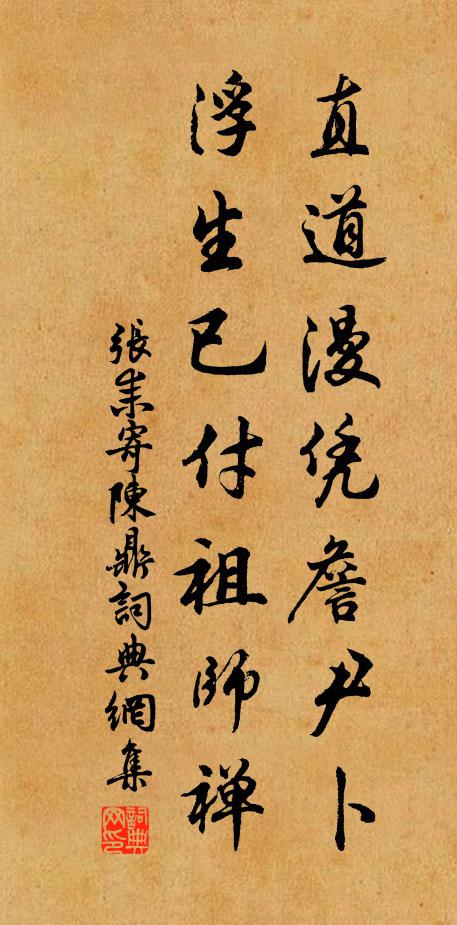 直道漫凭詹尹卜
浮生已付祖師禅
張耒寄陳鼎詞典網集
詞典网印